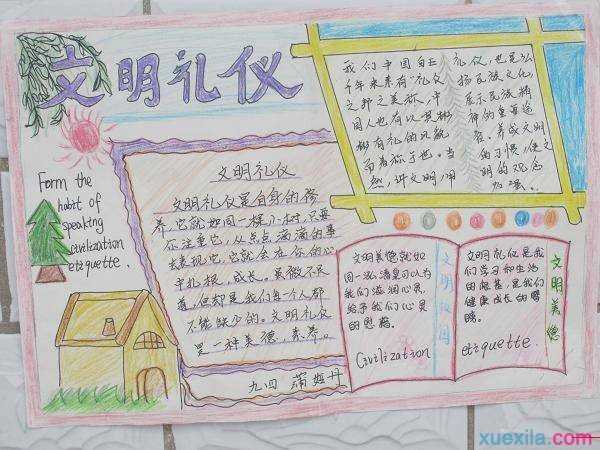 文明礼仪
Form the
habit of
speaking
civilization
etiquette
文明礼仪
文明礼仪是自身的修
养,它就如同一棵小树,只要
你注重它,从点点滴滴的事
去表现它,它就会在你的心
中扎根,成长。虽微不足
道,但却是我们每个人都
不能缺少的。文明礼仪
是一种美德,素养。
九四
我们中国自五
千年来素有"礼仪
之邦之美称,中
国人也有以其彬
彬有礼的风貌
而著称于世。当
然,讲文明,用
礼仪,也是弘
扬民族文化,
展示民族精
神的重要途
径,养成文明
的习惯,使文
明的观念
加强。
文明美德就如
同一泓清泉可以为
我们滋润心灵,
给予我们心灵
的恩赐。
Civilization
文明校园
文明礼仪是我
们学习和生活
的根基,是我们
健康成长的臂
膀。
etiquette
文明美德
xuexila.com